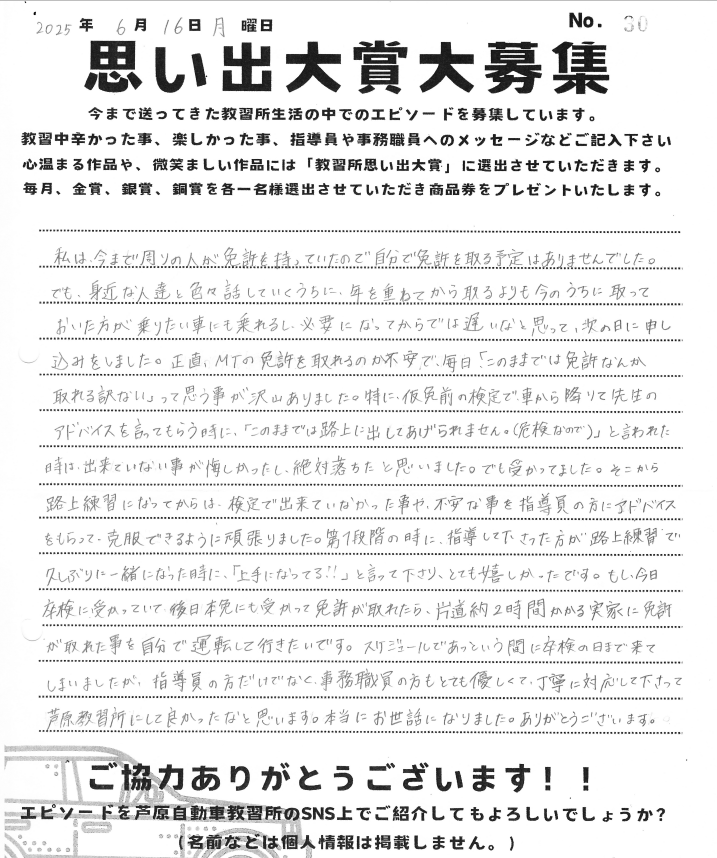 2025年 6月 16日 月曜日 No. 30
思い出大賞大募集
今まで送ってきた教習所生活の中でのエピソードを募集しています。
教習中辛かった事、楽しかった事、指導員や事務職員へのメッセージなどご記入下さい
心温まる作品や、微笑ましい作品には「教習所思い出大賞」に選出させていただきます。
毎月、金賞、銀賞、銅賞を各一名様選出させていただき商品券をプレゼントいたします。
私は、今まで周りの人が免許を持っていたので自分で免許を取る予定はありませんでした。
でも、身近な人達と色々話していくうちに、年を重ねてから取るよりも今のうちに取って
おいた方が乗りたい車にも乗れるし、必要になってからでは遅いなと思って、次の日に申し
込みをしました。正直、MTの免許を取れるのか不安で、毎日「このままでは免許なんか
取れる訳ない」って思う事が沢山ありました。特に、仮免前の検定で、車から降りて先生の
アドバイスを言ってもらう時に、「このままでは路上に出してあげられません。(危検なので)」と言われた
時は、出来ていない事が悔しかったし、絶対落ちたと思いました。でも受かってました。そこから
路上練習になってからは、検定で出来ていなかった事や、不安な事を指導員の方にアドバイス
をもらって、克服できるように頑張りました。第1段階の時に、指導して下さった方が路上練習で
久しぶりに一緒になった時に、「上手になってる!!」と言って下さり、とても嬉しかったです。もし、今日
卒検に受かっていて、後日本免にも受かって免許が取れたら、片道約2時間かかる実家に免許
が取れた事を自分で運転して行きたいです。スケジュールであっという間に卒検の日まで来て
しまいましたが、指導員の方だけでなく、事務職員の方もとても優しくて、丁寧に対応して下さって
芦原教習所にして良かったなと思います。本当にお世話になりました。ありがとうございます。
ご協力ありがとうございます！！
エピソードを芦原自動車教習所のSNS上でご紹介してもよろしいでしょうか？
（名前などは個人情報は掲載しません。）